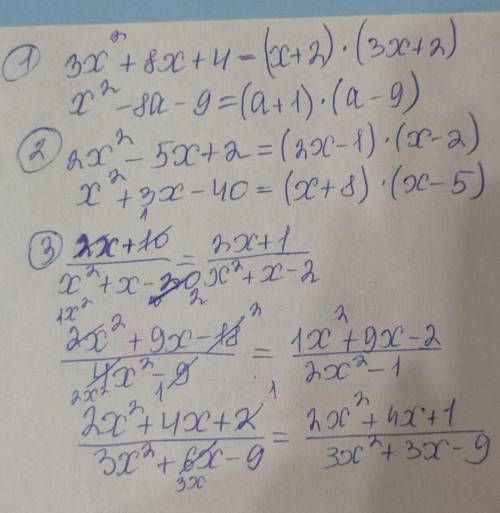 ① 3x² + 8x + 4 = (x+2) · (3x+2)
x² - 8a - 9 = (a+1) · (a-9)
② 2x² - 5x + 2 = (2x-1) · (x-2)
x² + 3x - 40 = (x+8) · (x-5)
1
③ 2x+10 / x² + x - 20 = 2x+1 / x² + x - 2
1x² 2
2x² + 9x - 18 / 4x² - 9 = 1x² + 9x - 2 / 2x² - 1
2
2x² 1
2x² + 4x + 2 / 3x² + 6x - 9 = 2x² + 4x + 1 / 3x² + 3x - 9
1
3x